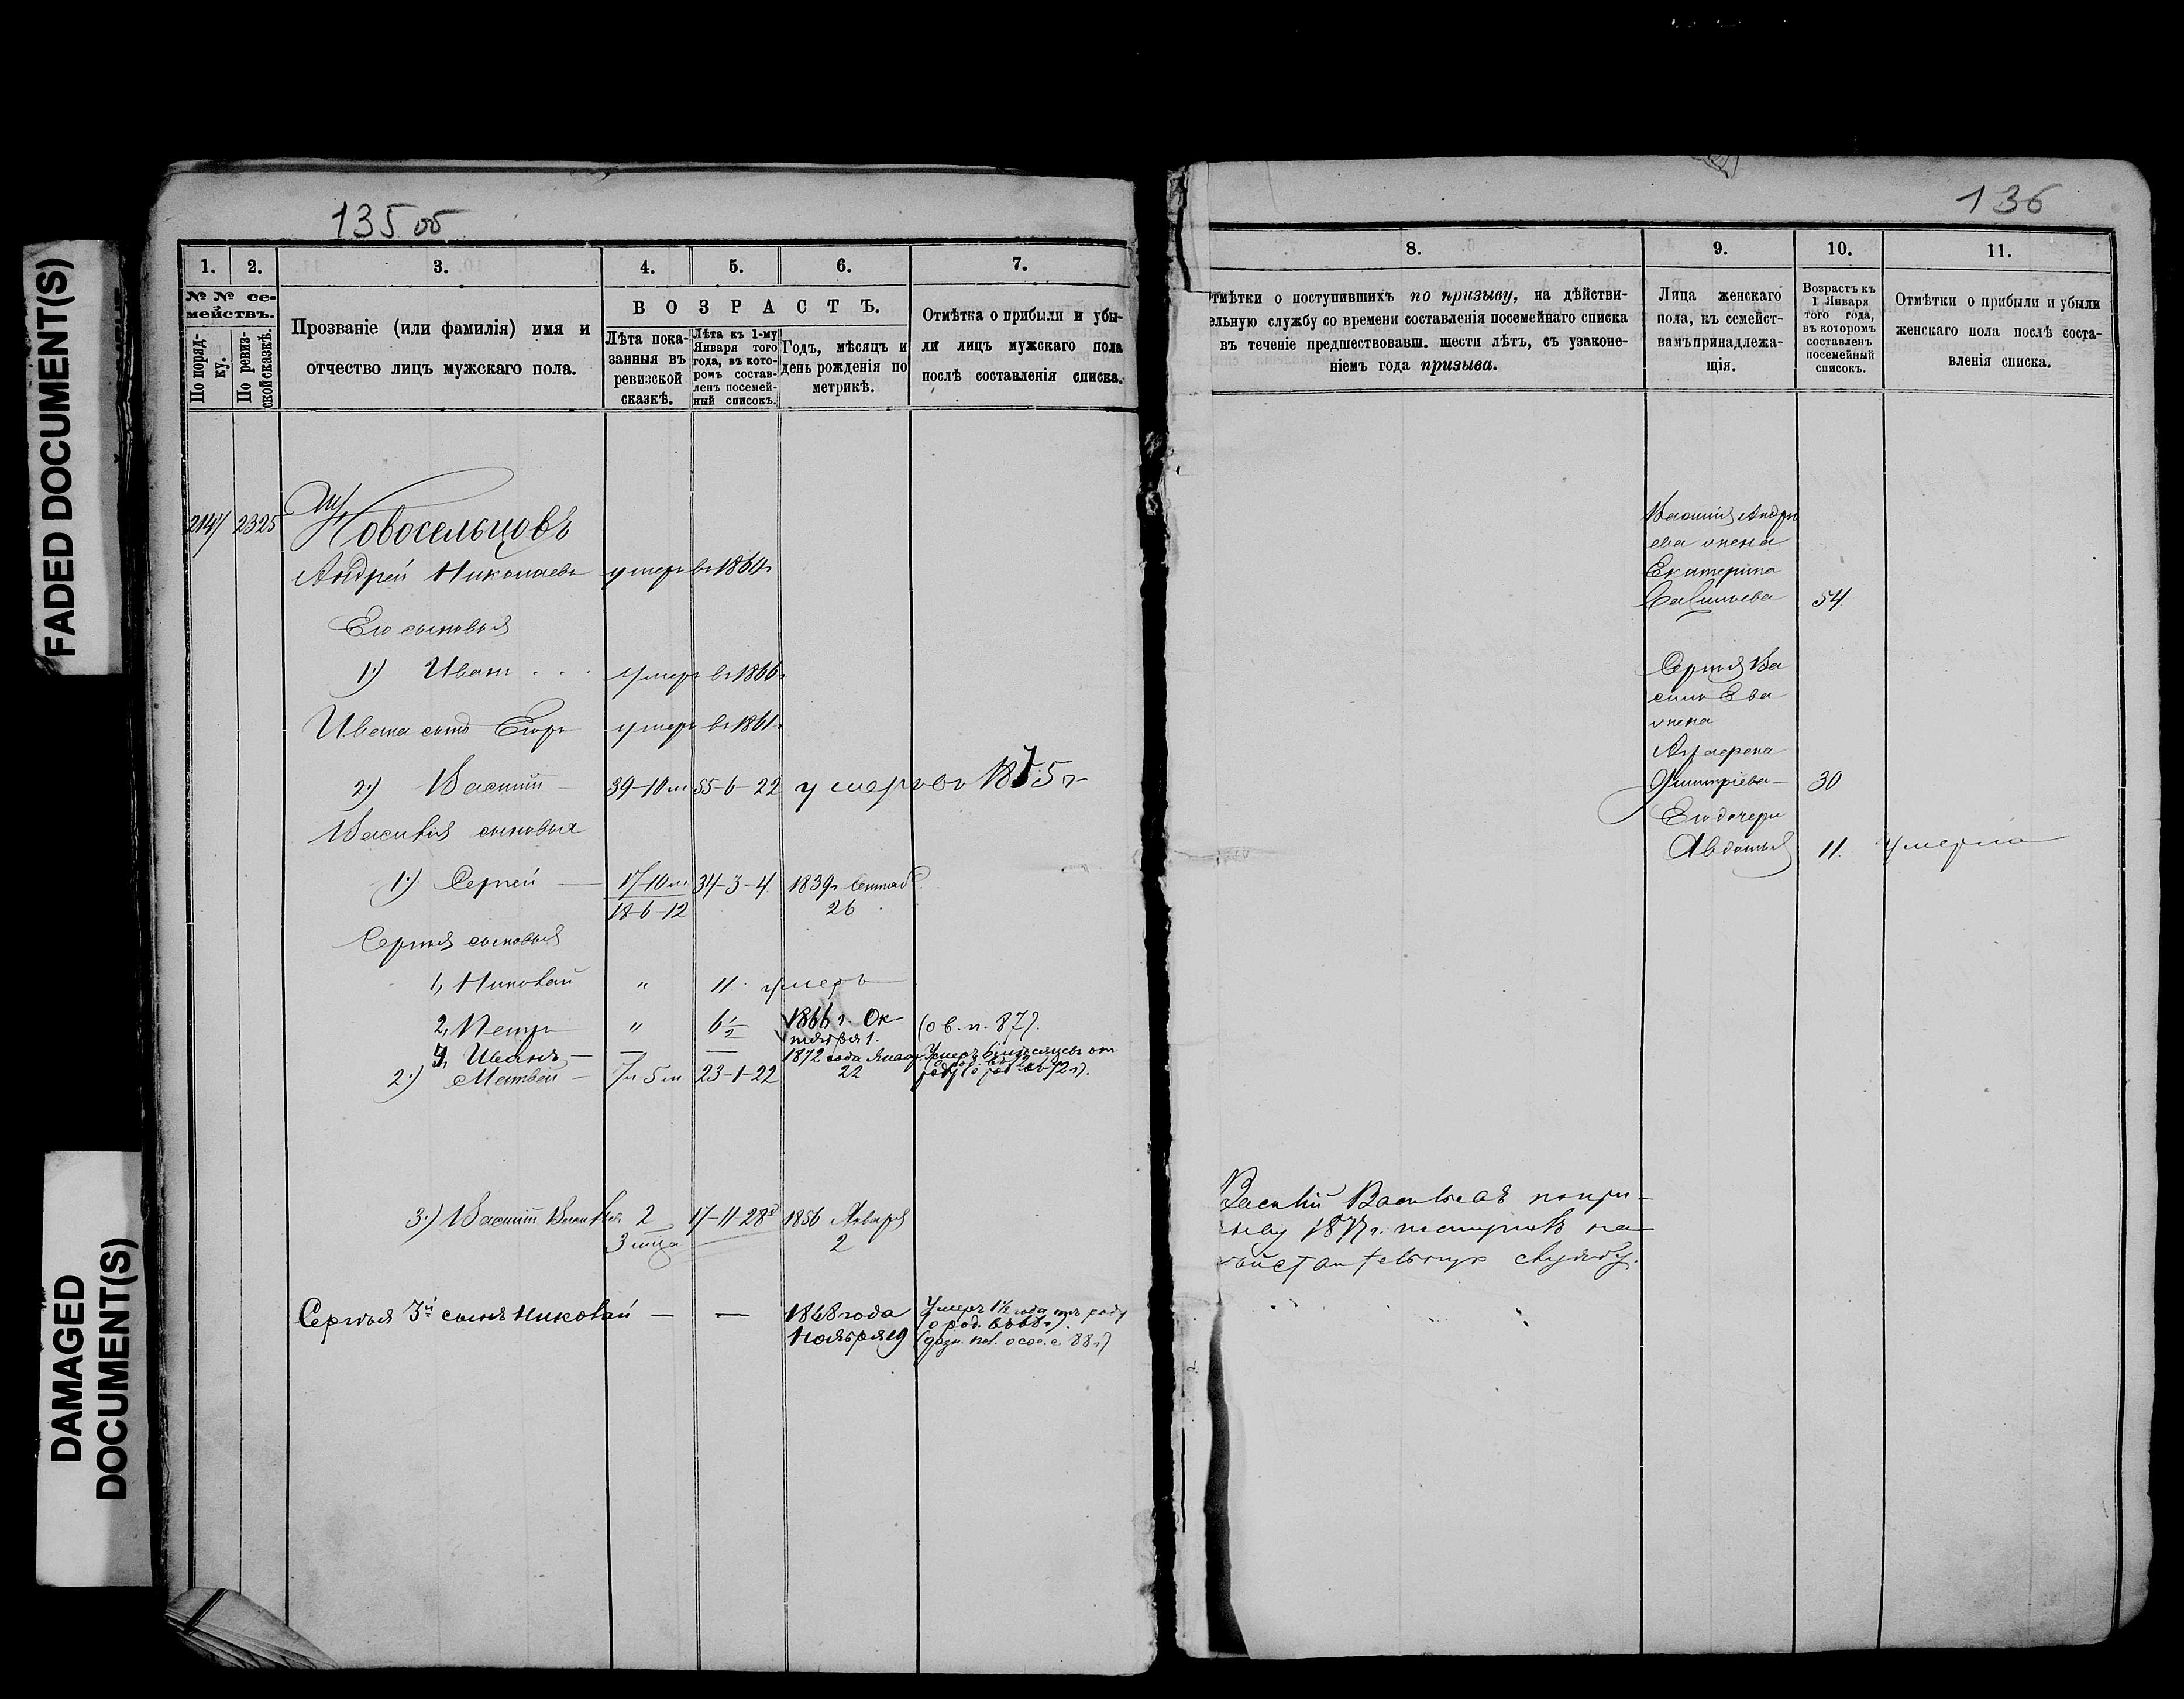 FADED DOCUMENT(S)
DAMAGED
DOCUMENT(S)
135 об
1.
2.
3.
4.
5.
6.
7.
№ № се-
мействъ.
По поряд-
ку.
По ревиз-
ской сказкѣ.
Прозваніе (или фамилія) имя и
отчество лицъ мужскаго пола.
ВОЗРАСТЪ.
Лѣта пока-
занныя въ
ревизской
сказкѣ.
Лѣта къ 1-му
Января того
года, въ кото-
ромъ состав-
ленъ посемей-
ный списокъ.
Годъ, мѣсяцъ и
день рожденія по
метрикѣ.
Отмѣтка о прибыли и убы-
ли лицъ мужскаго пола
послѣ составленія списка.
2147 2325
Новосельцовъ
Андрей Николаевъ умеръ въ 1860г
Его сыновья
1.) Иванъ умеръ въ 1866г
Ивана сынъ Егоръ умеръ въ 1861г
2.) Василій 39-10 м 55-6-22 умеръ въ 1875 г
Василія сыновья
1.) Сергей 17-10 м 34-3-4 1839г Сентяб
18-6-12 26
Сергея сыновья
1, Николай " 11. умеръ
2, Петръ " 6 1/2 1866 г. Ок-
тября 1. (о в. п. 87).
Иванъ — — 1872 года Января
22 Умеръ 6 мѣсяцевъ от
2.) Матвей 7 л 5 м 23-1-22
3.) Василій Васильев 2 17-11-28 1856 Января
3 мѣс 2
Сергея 3й сынъ Николай — — 1868 года
Ноября 19
Умеръ 1½ года отъ роду
(о род. въ 68 г)
136
8.
9.
10.
11.
тмѣтки о поступившихъ по призыву, на дѣйстви-
ельную службу со времени составленія посемейнаго списка
въ теченіе предшествовавш. шести лѣтъ, съ узаконе-
ніемъ года призыва.
Лица женскаго
пола, къ семейст-
вамъ принадлежа-
щія.
Возрастъ къ
1 Января
того года,
въ которомъ
составленъ
посемейный
списокъ.
Отмѣтки о прибыли и убыли
женскаго пола послѣ соста-
вленія списка.
Василія Андре
ева жена
Екатерина
Савельева 54
Сергея Ва
сильева
жена
Аграфена
Дмитріева — 30
Его дочери
Авдотья 11. умерла
Василій Васильевъ попри-
зыву 1877 г. поступилъ на
дѣйствительную службу.